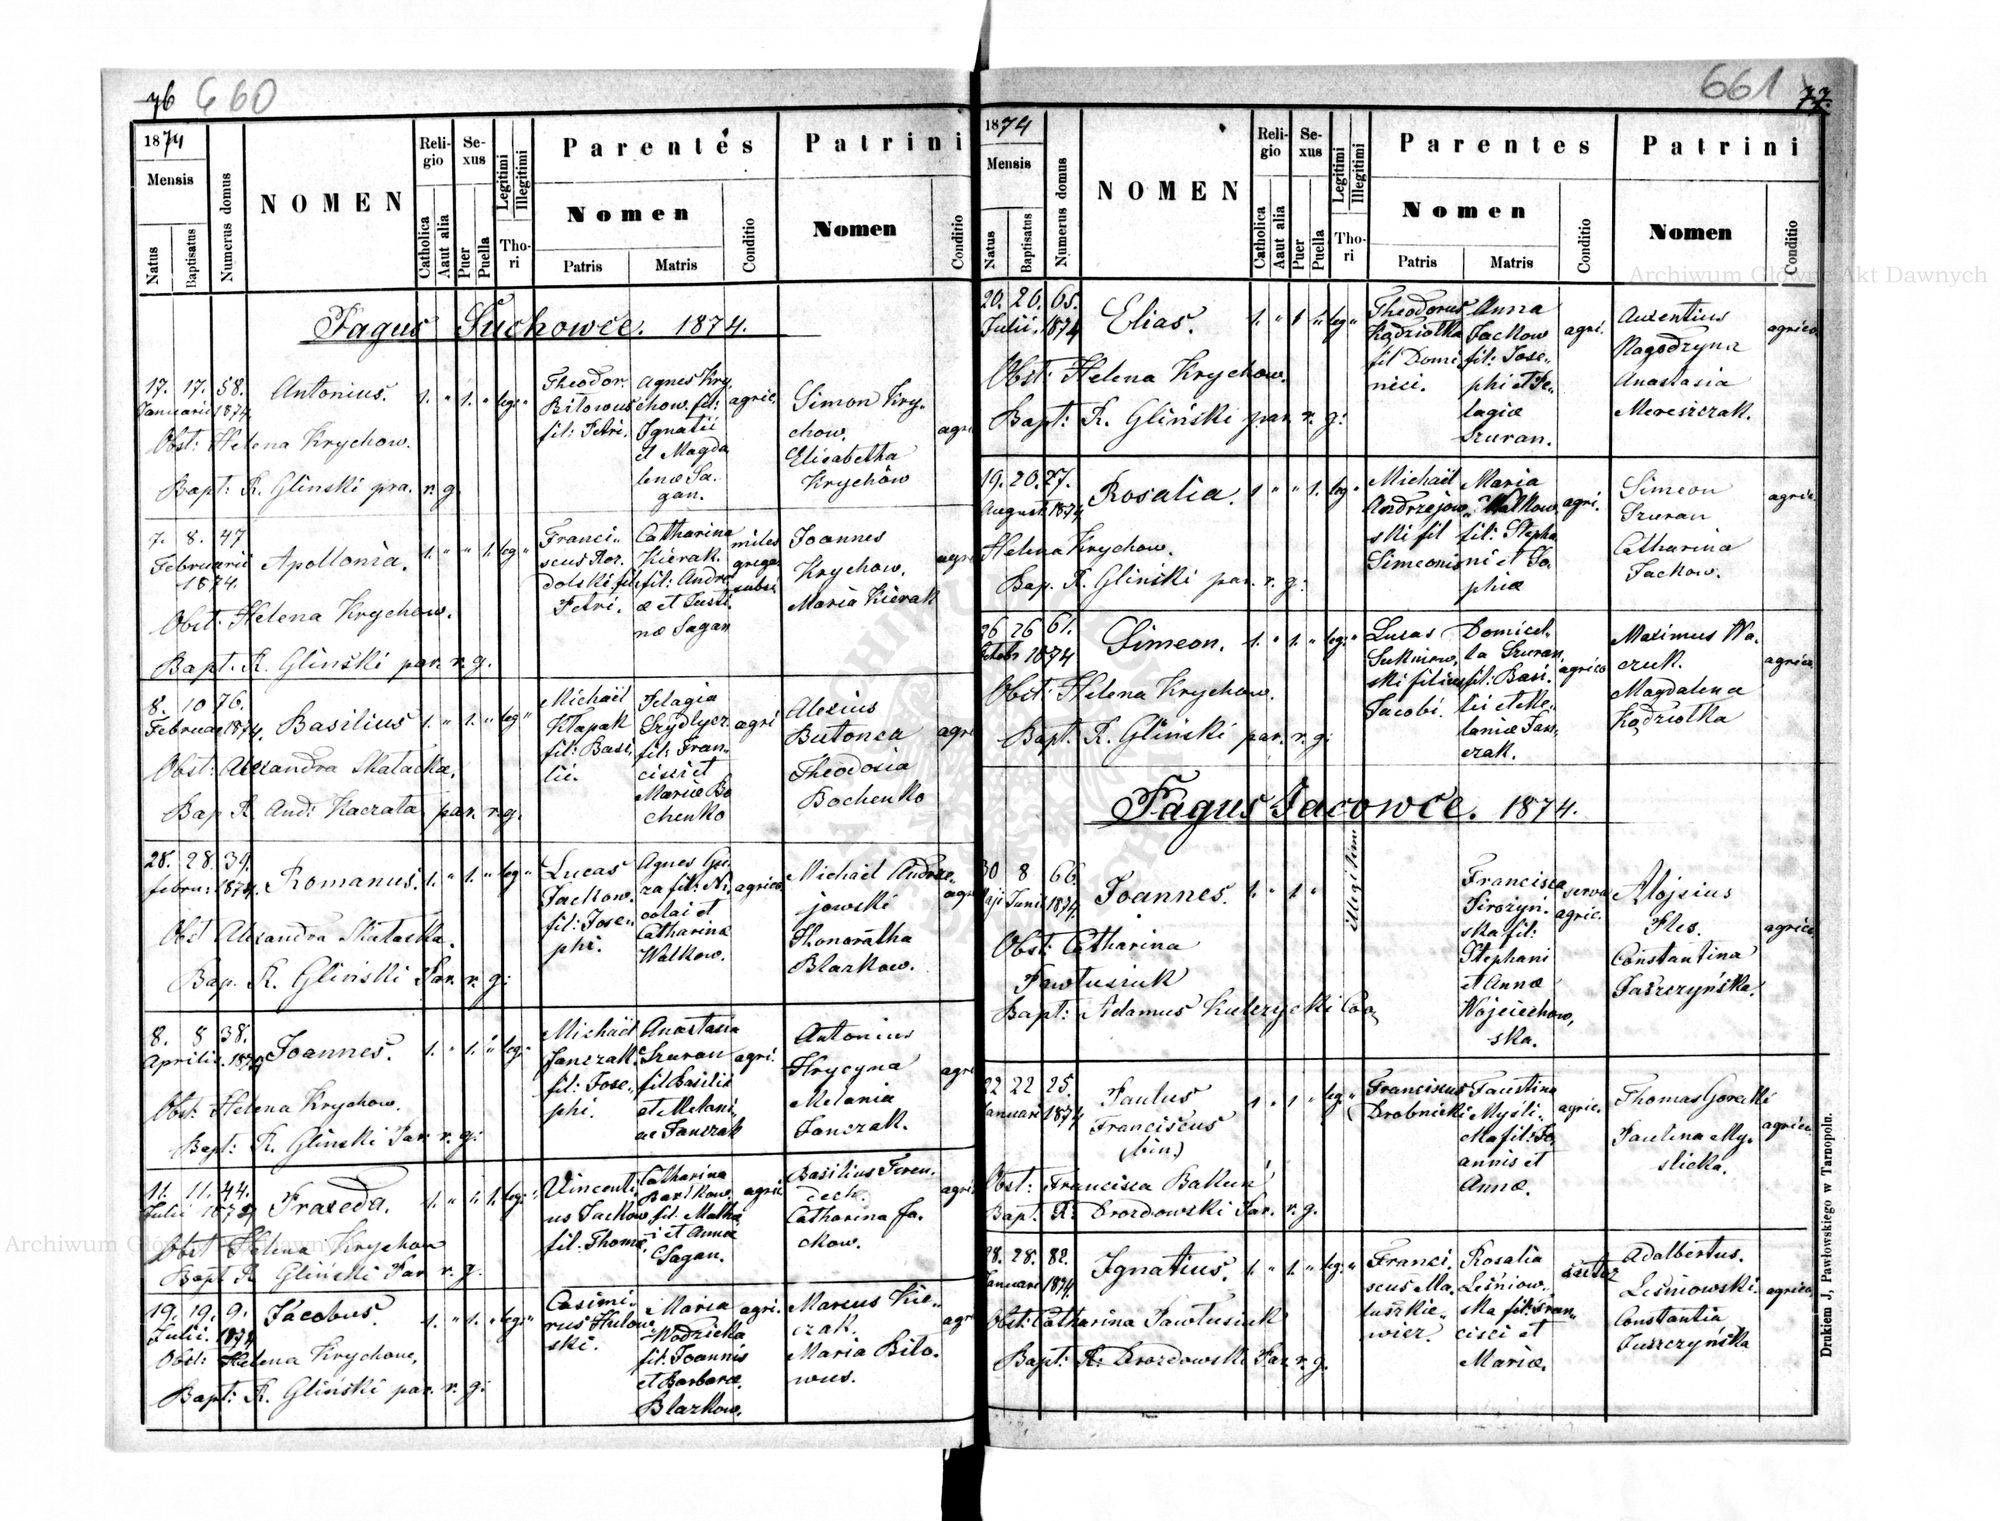 76 660
1874
Mensis
Natus
Baptisatus
Numerus domus
NOMEN
Religio
Catholica
Aaut alia
Sexus
Puer
Puella
Legitimi
Illegitimi
Thori
Parentes
Nomen
Patris
Matris
Conditio
Patrini
Nomen
Conditio
Pagus Suchowce. 1874.
17. 17. 58. Antonius. 1. " 1. " leg: "
Januarii 1874.
Obst: Helena Krychow.
Bapt: R. Glinski par. r. g.
Theodor
Bitowus
fil: Petri.
Agnes Kry
chow. fil:
Ignatii
et Magda
lenæ Sa
gan.
agric.
Simon Kry
chow.
Elisabetha
Krychów
agri
7. 8. 47 Apollonia. 1. " " 1. leg "
Februarii
1874.
Obst: Helena Krychow.
Bapt. R. Glinski par. r. g.
Franci
scus
dolski fil
Petri.
Catharina
Kierak.
fil: Andre
æ et Justi
næ Sagan
miles
gregar
Joannes
Krychow.
Maria Kierak
agri
8. 10 76. Basilius 1. " 1. " leg "
Februar 1874.
Obst: Alexandra Skatacka.
Bap R And: Kaczata par. r. g.
Michaël
Kłapak
fil: Basi
lii.
Pelagia
Szydłycz
fil: Fran
cisci et
Mariæ Bo
chenko
agri
Alexius
Butonca
Theodosia
Bochenko
agri
28. 28. 39. Romanus. 1. " 1. " leg "
febru: 1874.
Obst Alexandra Skatacka.
Bap. R. Gliński Par. r. g:
Lucas
Jackow.
fil: Jose
phi.
Agnes Gu
za fil: Ni
colai et
Catharinæ
Walkow.
agrico
Michaël Andrze
jowski
Honoratha
Blazkow.
agri
8. 8 38. Joannes. 1. " 1. " leg: "
Aprilis. 1874
Obst: Helena Krychow.
Bapt: R. Glinski Par. r. g:
Michaël
Janczak
fil: Jose
phi.
Anastasia
Szuran
fil Basilii
et Melani
ae Janczak
agri.
Antonius
Hrycyna
Melania
Janczak.
agri
11. 11. 44. Praxeda. 1. " " 1. leg: "
Julii 1874
Obst Helena Krychow
Bapt R Gliński Par r. g.
Vincenti
us Jackow
fil: Thomæ
Catharina
Bar Kow.
fil: Matha
i et Annæ
Sagan.
agric
Basilius Feren
dech.
Catharina Ja
ckow.
agri
19. 19. 9. Jacobus. 1. " 1. " leg: "
Julii. 1874
Obst: Helena Krychow,
Bapt: R. Gliński par. r. g:
Casimi
rus Hulow
ski.
Maria
Wodzicka
fil: Joannis
et Barbaræ
Blazkow.
agri.
Marcus Kie
czak.
Maria Bito
wus.
agri
661 77.
1874
Mensis
Natus
Baptisatus
Numerus domus
NOMEN
Religio
Catholica
Aaut alia
Sexus
Puer
Puella
Legitimi
Illegitimi
Thori
Parentes
Nomen
Patris
Matris
Conditio
Patrini
Nomen
Conditio
20. 26. 65. Elias. 1. " 1 " leg "
Julii. 1874
Obst: Helena Krychow.
Bapt: R. Gliński par. r. g:
Theodorus
Kądziołka
fil Domi
nici.
Anna
Jackow
fil: Jose
phi et Pe
lagiæ
Szuran.
agri.
Auxentius
Nagodzyna
Anastasia
Mereszczak.
agrico
19. 20. 27. Rosalia. 1 " " 1. leg "
August 1874
Helena Krychow.
Bap. R. Gliński par. r. g:
Michaël
Andrzejow
ski fil
Simeonis
Maria
Walkow.
fil: Stepha
ni et So
phiæ
agri.
Simeon
Szuran
Catharina
Jackow.
agric
26 26 61. Simeon. 1. " 1. " leg: "
Octobr 1874
Obst: Helena Krychow.
Bapt: R. Gliński par. r. g:
Lucas
Sukniow
ski filius
Jacobi.
Domicel
la Szuran
fil: Basi
lii et Me
laniæ Jan
czak.
agrico
Maximus Wa
czuk.
Magdalena
Kądziołka
agrico
Pagus Jacowce. 1874.
30 8 66. Joannes. 1. " 1 " illegitimi
Maji Junii 1874.
Obst: Catharina
Pawlusiuk
Bapt: Adamus Kulczycki Coo,
Francisca
Sirozyn
ska fil:
Stephani
et Annæ
Wojciechow
ska.
serva
agric.
Alojsius
Ples.
Constantina
Jaszczyńska.
agrico
22 22 25. Paulus 1 " 1 " leg "
Januari 1874 Franciscus
(bin)
Obst: Francisca Bakun
Bapt. R: Drozdowski Par. r. g.
Franciscus
Drobnicki
Faustina
Mysli
cka fil: Jo
annis et
Annæ.
agric.
Thomas Gorecki
Paulina My
slicka.
agrico
28. 28. 82. Ignatius. 1. " 1. " leg: "
Januari 1874.
Obst: Catharina Pawlusiuk
Bapt: R: Drozdowski Par r. g.
Franci
scus Ma
tuszkie
wicz
Rosalia
Leśniow
ska fil: Fran
cisci et
Mariæ.
Adalbertus.
Leśniowski.
Constantia
Juszczyńska
agrico
Drukiem J, Pawłowskiego w Tarnopolu.
Archiwum Główne Akt Dawnych
Archiwum Główne Akt Dawnych